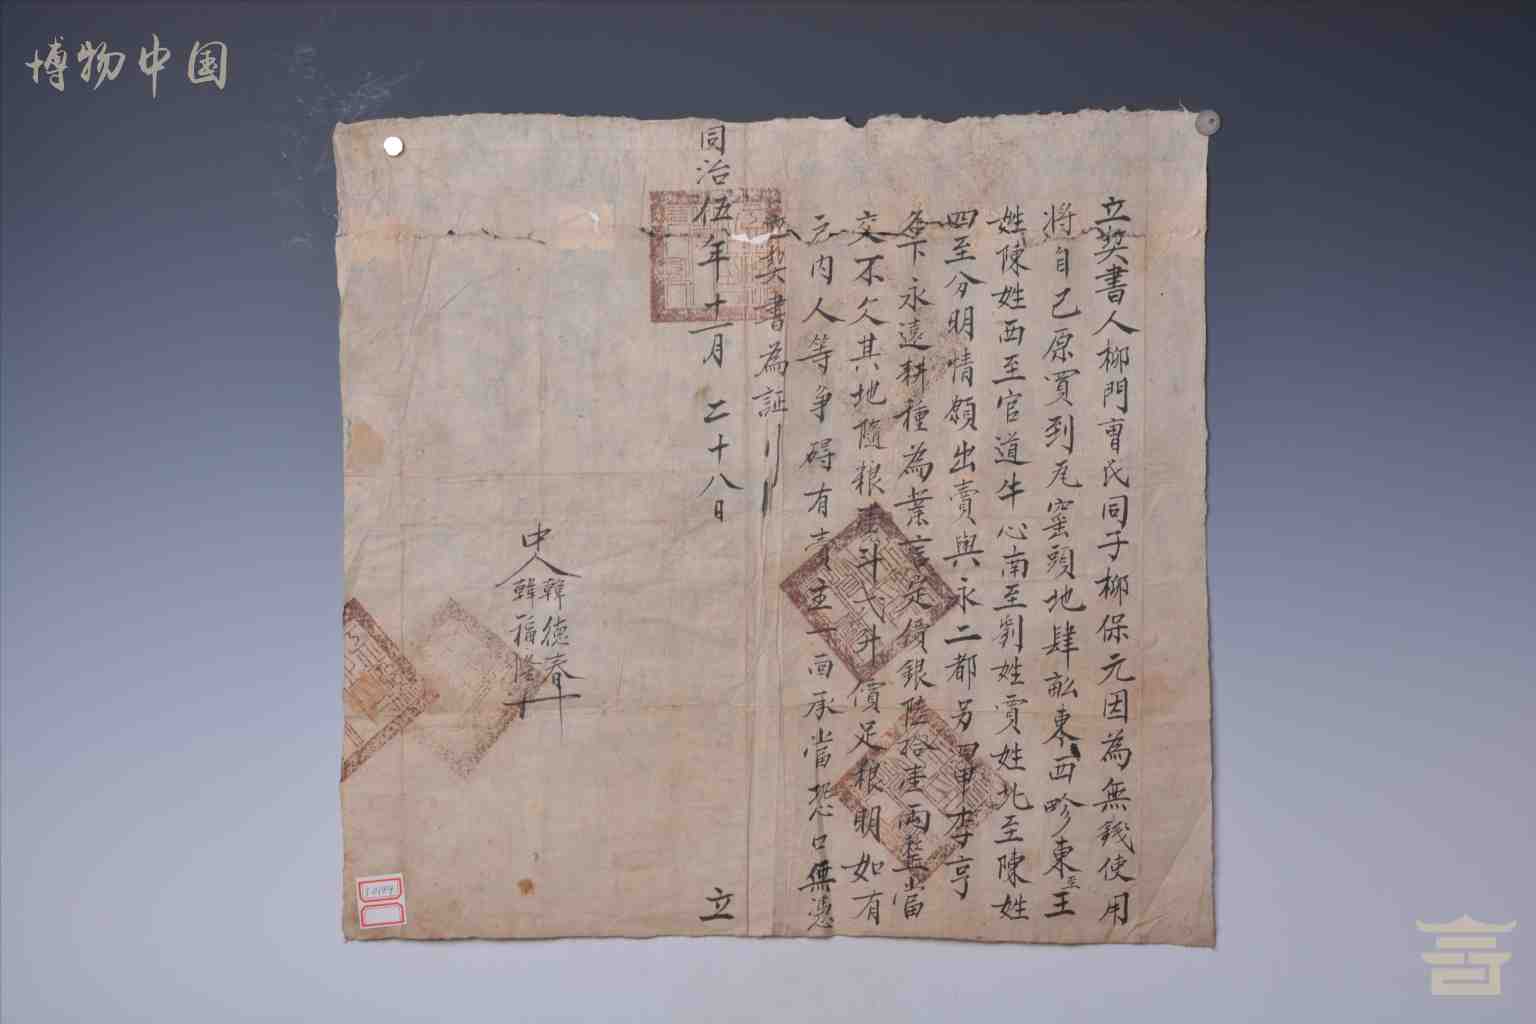 博物中国
立契書人柳門曹氏同子柳保元因為無錢使用
將自己原買到瓦窰頭地肆畝東西畛東至王
姓陳姓西至官道牛心南至劉姓賈姓北至陳姓
四至分明情願出賣與永二都另四甲李亨
名下永遠耕種為業言定價銀陸拾壹兩整當
交不欠其地隨粮斗弍升價足粮明如有
户内人等争碍有賣主一面承當恐口無憑
立契書為証
同治伍年十一月二十八日 立
中人 韓德春 韓福隆 十